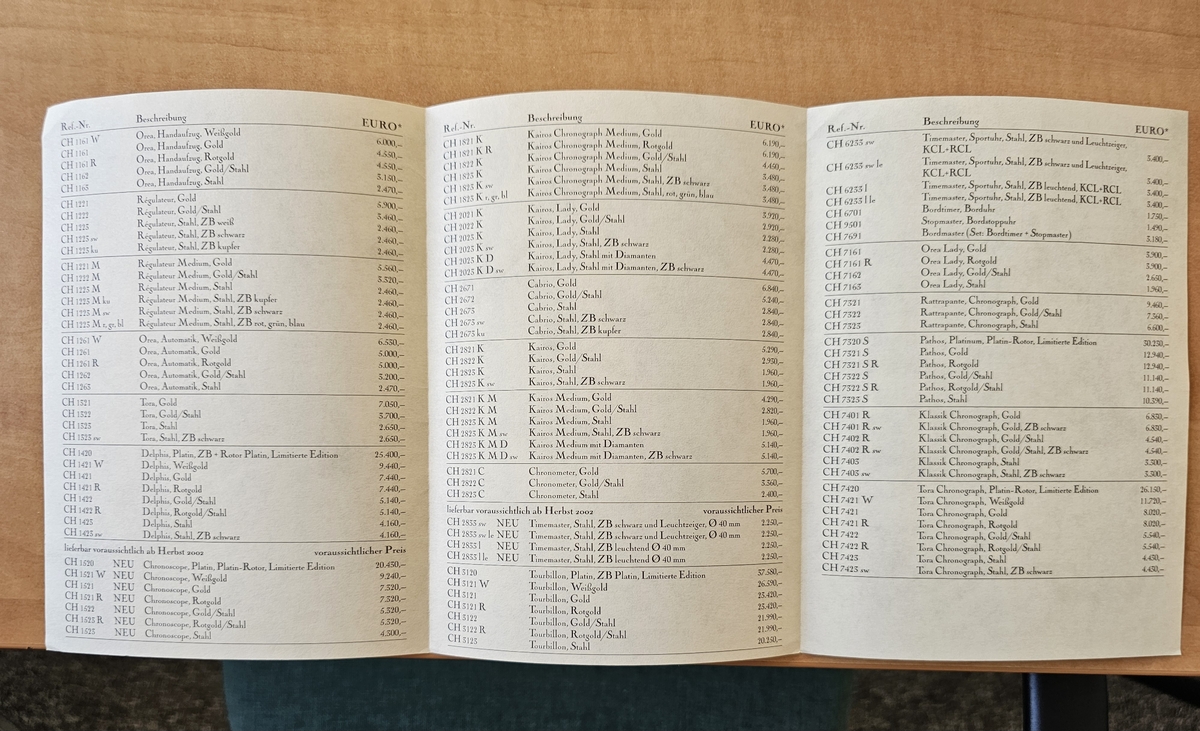 Ref.-Nr. Beschreibung EURO*
CH 1161 W Orea, Handaufzug, Weißgold 6.000,–
CH 1161 Orea, Handaufzug, Gold 4.550,–
CH 1161 R Orea, Handaufzug, Rotgold 4.550,–
CH 1162 Orea, Handaufzug, Gold/Stahl 3.150,–
CH 1163 Orea, Handaufzug, Stahl 2.470,–
CH 1221 Régulateur, Gold 5.900,–
CH 1222 Régulateur, Gold/Stahl 3.460,–
CH 1223 Régulateur, Stahl, ZB weiß 2.460,–
CH 1223 sw Régulateur, Stahl, ZB schwarz 2.460,–
CH 1223 ku Régulateur, Stahl, ZB kupfer 2.460,–
CH 1221 M Régulateur Medium, Gold 5.560,–
CH 1222 M Régulateur Medium, Gold/Stahl 3.320,–
CH 1223 M Régulateur Medium, Stahl 2.460,–
CH 1223 M ku Régulateur Medium, Stahl, ZB kupfer 2.460,–
CH 1223 M sw Régulateur Medium, Stahl, ZB schwarz 2.460,–
CH 1223 M r, gr, bl Régulateur Medium, Stahl, ZB rot, grün, blau 2.460,–
CH 1261 W Orea, Automatik, Weißgold 6.530,–
CH 1261 Orea, Automatik, Gold 5.000,–
CH 1261 R Orea, Automatik, Rotgold 5.000,–
CH 1262 Orea, Automatik, Gold/Stahl 3.200,–
CH 1263 Orea, Automatik, Stahl 2.470,–
CH 1321 Tora, Gold 7.050,–
CH 1322 Tora, Gold/Stahl 3.700,–
CH 1323 Tora, Stahl 2.650,–
CH 1323 sw Tora, Stahl, ZB schwarz 2.650,–
CH 1420 Delphis, Platin, ZB + Rotor Platin, Limitierte Edition 25.400,–
CH 1421 W Delphis, Weißgold 9.440,–
CH 1421 Delphis, Gold 7.440,–
CH 1421 R Delphis, Rotgold 7.440,–
CH 1422 Delphis, Gold/Stahl 5.140,–
CH 1422 R Delphis, Rotgold/Stahl 5.140,–
CH 1423 Delphis, Stahl 4.160,–
CH 1423 sw Delphis, Stahl, ZB schwarz 4.160,–
lieferbar voraussichtlich ab Herbst 2002 voraussichtlicher Preis
CH 1520 NEU Chronoscope, Platin, Platin-Rotor, Limitierte Edition 20.450,–
CH 1521 W NEU Chronoscope, Weißgold 9.240,–
CH 1521 NEU Chronoscope, Gold 7.320,–
CH 1521 R NEU Chronoscope, Rotgold 7.320,–
CH 1522 NEU Chronoscope, Gold/Stahl 5.320,–
CH 1523 R NEU Chronoscope, Rotgold/Stahl 5.320,–
CH 1523 NEU Chronoscope, Stahl 4.300,–
Ref.-Nr. Beschreibung EURO*
CH 1821 K Kairos Chronograph Medium, Gold 6.190,–
CH 1821 K R Kairos Chronograph Medium, Rotgold 6.190,–
CH 1822 K Kairos Chronograph Medium, Gold/Stahl 4.450,–
CH 1823 K Kairos Chronograph Medium, Stahl 3.480,–
CH 1823 K sw Kairos Chronograph Medium, Stahl, ZB schwarz 3.480,–
CH 1823 K r, gr, bl Kairos Chronograph Medium, Stahl, rot, grün, blau 3.480,–
CH 2021 K Kairos, Lady, Gold 3.920,–
CH 2022 K Kairos, Lady, Gold/Stahl 2.920,–
CH 2023 K Kairos, Lady, Stahl 2.280,–
CH 2023 K sw Kairos, Lady, Stahl, ZB schwarz 2.280,–
CH 2023 K D Kairos, Lady, Stahl mit Diamanten 4.470,–
CH 2023 K D sw Kairos, Lady, Stahl mit Diamanten, ZB schwarz 4.470,–
CH 2671 Cabrio, Gold 6.840,–
CH 2672 Cabrio, Gold/Stahl 5.240,–
CH 2673 Cabrio, Stahl 2.840,–
CH 2673 sw Cabrio, Stahl, ZB schwarz 2.840,–
CH 2673 ku Cabrio, Stahl, ZB kupfer 2.840,–
CH 2821 K Kairos, Gold 5.290,–
CH 2822 K Kairos, Gold/Stahl 2.930,–
CH 2823 K Kairos, Stahl 1.960,–
CH 2823 K sw Kairos, Stahl, ZB schwarz 1.960,–
CH 2821 K M Kairos Medium, Gold 4.290,–
CH 2822 K M Kairos Medium, Gold/Stahl 2.820,–
CH 2823 K M Kairos Medium, Stahl 1.960,–
CH 2823 K M sw Kairos Medium, Stahl, ZB schwarz 1.960,–
CH 2823 K M D Kairos Medium mit Diamanten 5.140,–
CH 2823 K M D sw Kairos Medium mit Diamanten, ZB schwarz 5.140,–
CH 2821 C Chronometer, Gold 5.700,–
CH 2822 C Chronometer, Gold/Stahl 3.360,–
CH 2823 C Chronometer, Stahl 2.400,–
lieferbar voraussichtlich ab Herbst 2002 voraussichtlicher Preis
CH 2833 sw NEU Timemaster, Stahl, ZB schwarz und Leuchtzeiger, Ø 40 mm 2.250,–
CH 2833 sw le NEU Timemaster, Stahl, ZB schwarz und Leuchtzeiger, Ø 40 mm 2.250,–
CH 2833 l NEU Timemaster, Stahl, ZB leuchtend Ø 40 mm 2.250,–
CH 2833 l le NEU Timemaster, Stahl, ZB leuchtend Ø 40 mm 2.250,–
CH 3120 Tourbillon, Platin, ZB Platin, Limitierte Edition 37.580,–
CH 3121 W Tourbillon, Weißgold 26.590,–
CH 3121 Tourbillon, Gold 23.420,–
CH 3121 R Tourbillon, Rotgold 23.420,–
CH 3122 Tourbillon, Gold/Stahl 21.990,–
CH 3122 R Tourbillon, Rotgold/Stahl 21.990,–
CH 3123 Tourbillon, Stahl 20.250,–
Ref.-Nr. Beschreibung EURO*
CH 6233 sw Timemaster, Sportuhr, Stahl, ZB schwarz und Leuchtzeiger,
KCL+RCL 3.400,–
CH 6233 sw le Timemaster, Sportuhr, Stahl, ZB schwarz und Leuchtzeiger,
KCL+RCL 3.400,–
CH 6233 l Timemaster, Sportuhr, Stahl, ZB leuchtend, KCL+RCL 3.400,–
CH 6233 l le Timemaster, Sportuhr, Stahl, ZB leuchtend, KCL+RCL 3.400,–
CH 6701 Bordtimer, Borduhr 1.750,–
CH 9501 Stopmaster, Bordstoppuhr 1.490,–
CH 7691 Bordmaster (Set: Bordtimer + Stopmaster) 3.180,–
CH 7161 Orea Lady, Gold 3.900,–
CH 7161 R Orea Lady, Rotgold 3.900,–
CH 7162 Orea Lady, Gold/Stahl 2.650,–
CH 7163 Orea Lady, Stahl 1.960,–
CH 7321 Rattrapante, Chronograph, Gold 9.460,–
CH 7322 Rattrapante, Chronograph, Gold/Stahl 7.560,–
CH 7323 Rattrapante, Chronograph, Stahl 6.600,–
CH 7320 S Pathos, Platinum, Platin-Rotor, Limitierte Edition 30.250,–
CH 7321 S Pathos, Gold 12.940,–
CH 7321 S R Pathos, Rotgold 12.940,–
CH 7322 S Pathos, Gold/Stahl 11.140,–
CH 7322 S R Pathos, Rotgold/Stahl 11.140,–
CH 7323 S Pathos, Stahl 10.390,–
CH 7401 R Klassik Chronograph, Gold 6.830,–
CH 7401 R sw Klassik Chronograph, Gold, ZB schwarz 6.830,–
CH 7402 R Klassik Chronograph, Gold/Stahl 4.540,–
CH 7402 R sw Klassik Chronograph, Gold/Stahl, ZB schwarz 4.540,–
CH 7403 Klassik Chronograph, Stahl 3.300,–
CH 7403 sw Klassik Chronograph, Stahl, ZB schwarz 3.300,–
CH 7420 Tora Chronograph, Platin-Rotor, Limitierte Edition 26.150,–
CH 7421 W Tora Chronograph, Weißgold 11.720,–
CH 7421 Tora Chronograph, Gold 8.020,–
CH 7421 R Tora Chronograph, Rotgold 8.020,–
CH 7422 Tora Chronograph, Gold/Stahl 5.540,–
CH 7422 R Tora Chronograph, Rotgold/Stahl 5.540,–
CH 7423 Tora Chronograph, Stahl 4.430,–
CH 7423 sw Tora Chronograph, Stahl, ZB schwarz 4.430,–